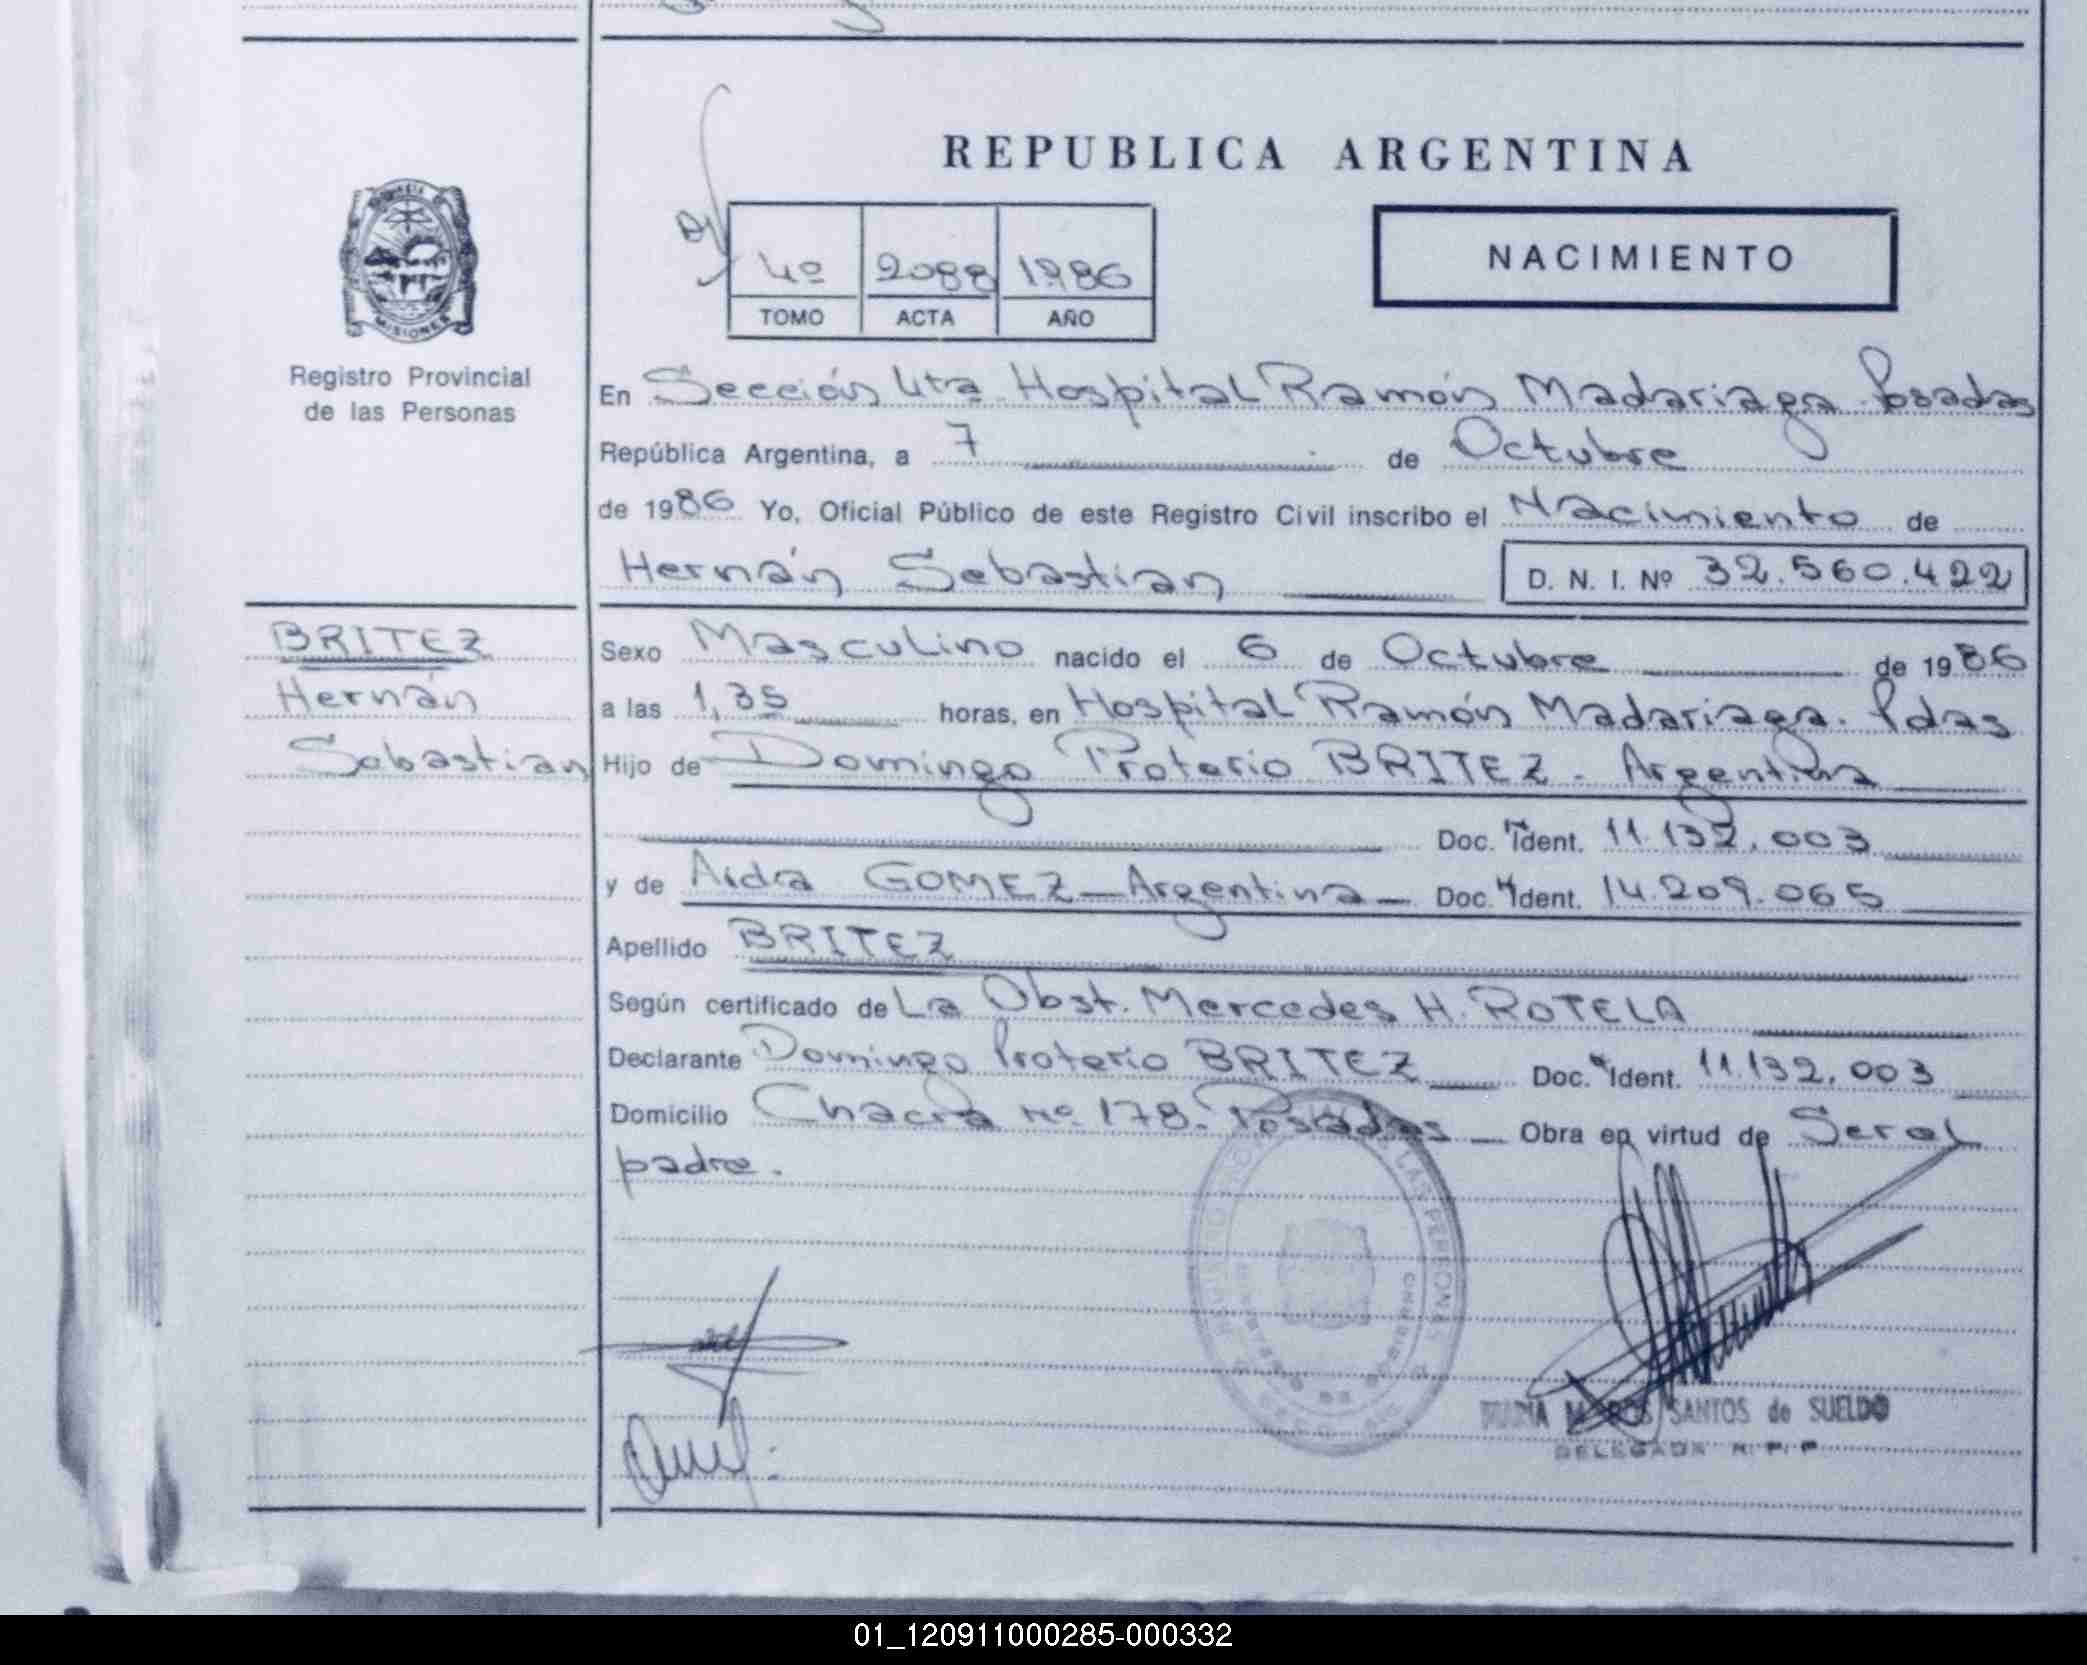 REPUBLICA ARGENTINA
MISIONES
Registro Provincial
de las Personas
4º 2088 1986
TOMO ACTA AÑO
NACIMIENTO
En Sección 4ta Hospital Ramón Madariaga Posadas
República Argentina, a 7 de Octubre
de 1986 Yo, Oficial Público de este Registro Civil inscribo el Nacimiento de
Hernán Sebastian D. N. I. Nº 32.560.422
BRITEZ
Hernán
Sebastian
Sexo Masculino nacido el 6 de Octubre de 1986
a las 1,35 horas, en Hospital Ramón Madariaga. Pdas
Hijo de Domingo Proterio BRITEZ - Argentina
Doc. Ident. 11.132.003
y de Aida GOMEZ - Argentina - Doc. Ident. 14.209.065
Apellido BRITEZ
Según certificado de La Obst. Mercedes H. ROTELA
Declarante Domingo Proterio BRITEZ Doc. Ident. 11.132.003
Domicilio Chacra Nº 178. Posadas - Obra en virtud de Ser el
padre.
LAS PERSONAS
SANTOS de SUELDO
DELEGADA R. P. P.
01_120911000285-000332